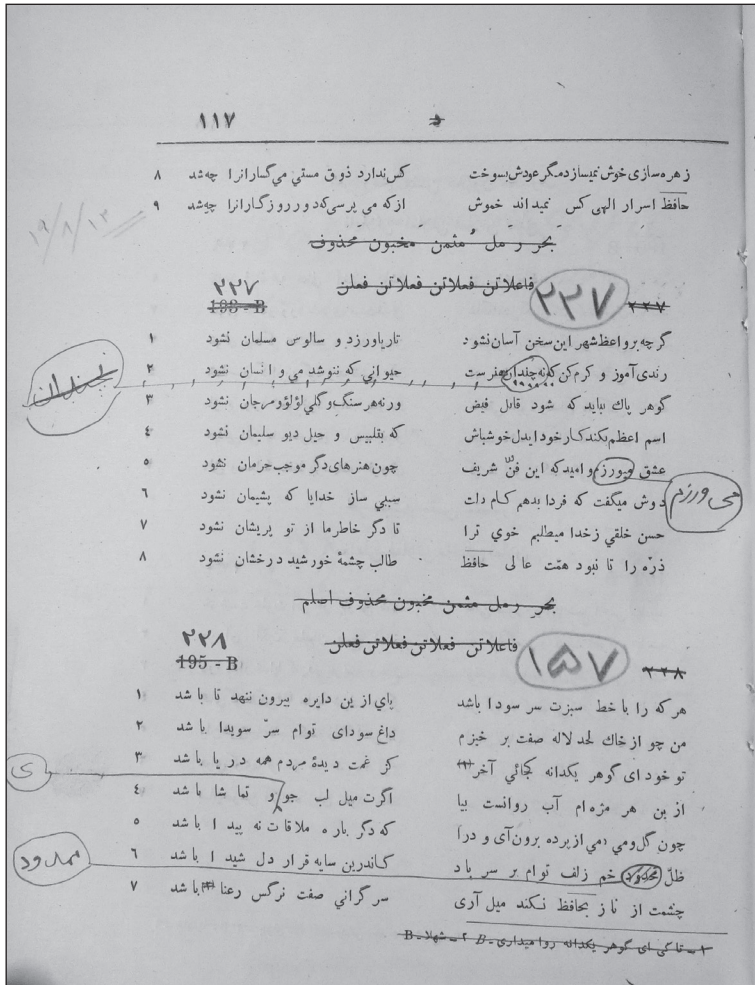 ۱۱۷ د
زهره سازی خوش نمیسازد مگر عودش بسوخت کس ندارد ذوق مستی می گسارانرا چه شد ۸
حافظ اسرار الهی کس نمیداند خموش از که می پرسی که دور روزگارانرا چه شد ۹
۱۹/۸/۱۳
بحر رمل مثمن مخبون محذوف
فاعلاتن فعلاتن فعلاتن فعلن
۲۲۷ ۲۲۷ ۲۲۷
193 - B
گر چه بر واعظ شهر این سخن آسان نشود تا ریا ورزد و سالوس مسلمان نشود ۱
رندی آموز و کرم کن که نه چندان هنرست حیوانی که ننوشد می و انسان نشود ۲
نچندان
گوهر پاك بباید که شود قابل فیض ورنه هر سنگ و گلی لؤلؤ و مرجان نشود ۳
اسم اعظم بکند کار خود ایدل خوشباش که بتلبیس و حیل دیو سلیمان نشود ۴
عشق میورزم و امید که این فنّ شریف چون هنرهای دگر موجب حرمان نشود ۵
می ورزم
دوش میگفت که فردا بدهم کام دلت سببی ساز خدایا که پشیمان نشود ۶
حسن خلقی زخدا میطلبم خوی ترا تا دگر خاطر ما از تو پریشان نشود ۷
ذرّه را تا نبود همّت عالی حافظ طالب چشمهٔ خورشید درخشان نشود ۸
بحر رمل مثمن مخبون محذوف اصلم
فاعلاتن فعلاتن فعلاتن فعلن
۲۲۸ ۱۵۷ ۲۲۸
195 - B
هر که را با خط سبزت سر سودا باشد پای از ین دایره بیرون ننهد تا باشد ۱
من چو از خاك لحد لاله صفت بر خیزم داغ سودای توام سرّ سویدا باشد ۲
تو خود ای گوهر یکدانه کجائی آخر (۱) کز غمت دیدهٔ مردم همه دریا باشد ۳
ی
از بن هر مژه ام آب روانست بیا اگرت میل لب جو و تماشا باشد ۴
چون گل و می دمی از پرده برون آی و درا که دگر باره ملاقات نه پیدا باشد ۵
ممدود
ظلّ محدود خم زلف توام بر سر باد کاندرین سایه قرار دل شیدا باشد ۶
چشمت از ناز بحافظ نکند میل آری سر گرانی صفت نرگس رعنا (۲) باشد ۷
۱ - تا کی ای گوهر یکدانه روا میداری - B ۲ - شهلا - B